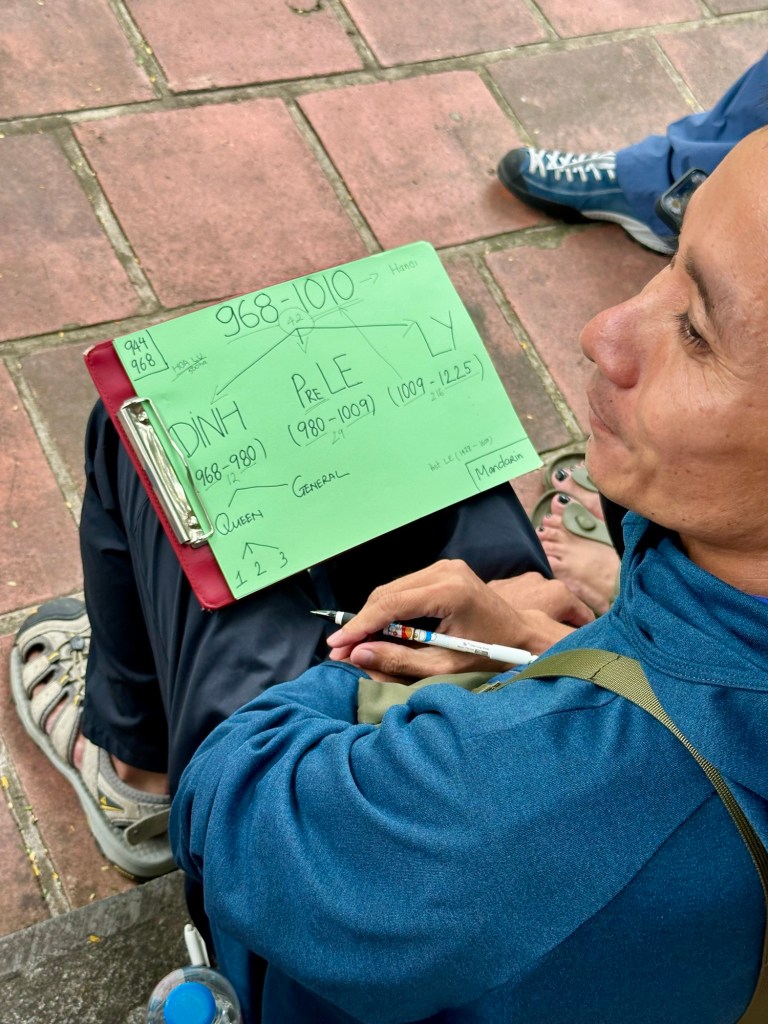 968-1010 → Hanoi
944
968
HOA LƯ
42
ĐINH
(968-980)
12
PRE LE
(980-1009)
29
LY
(1009-1225)
216
QUEEN
GENERAL
1 2 3
Mandarin